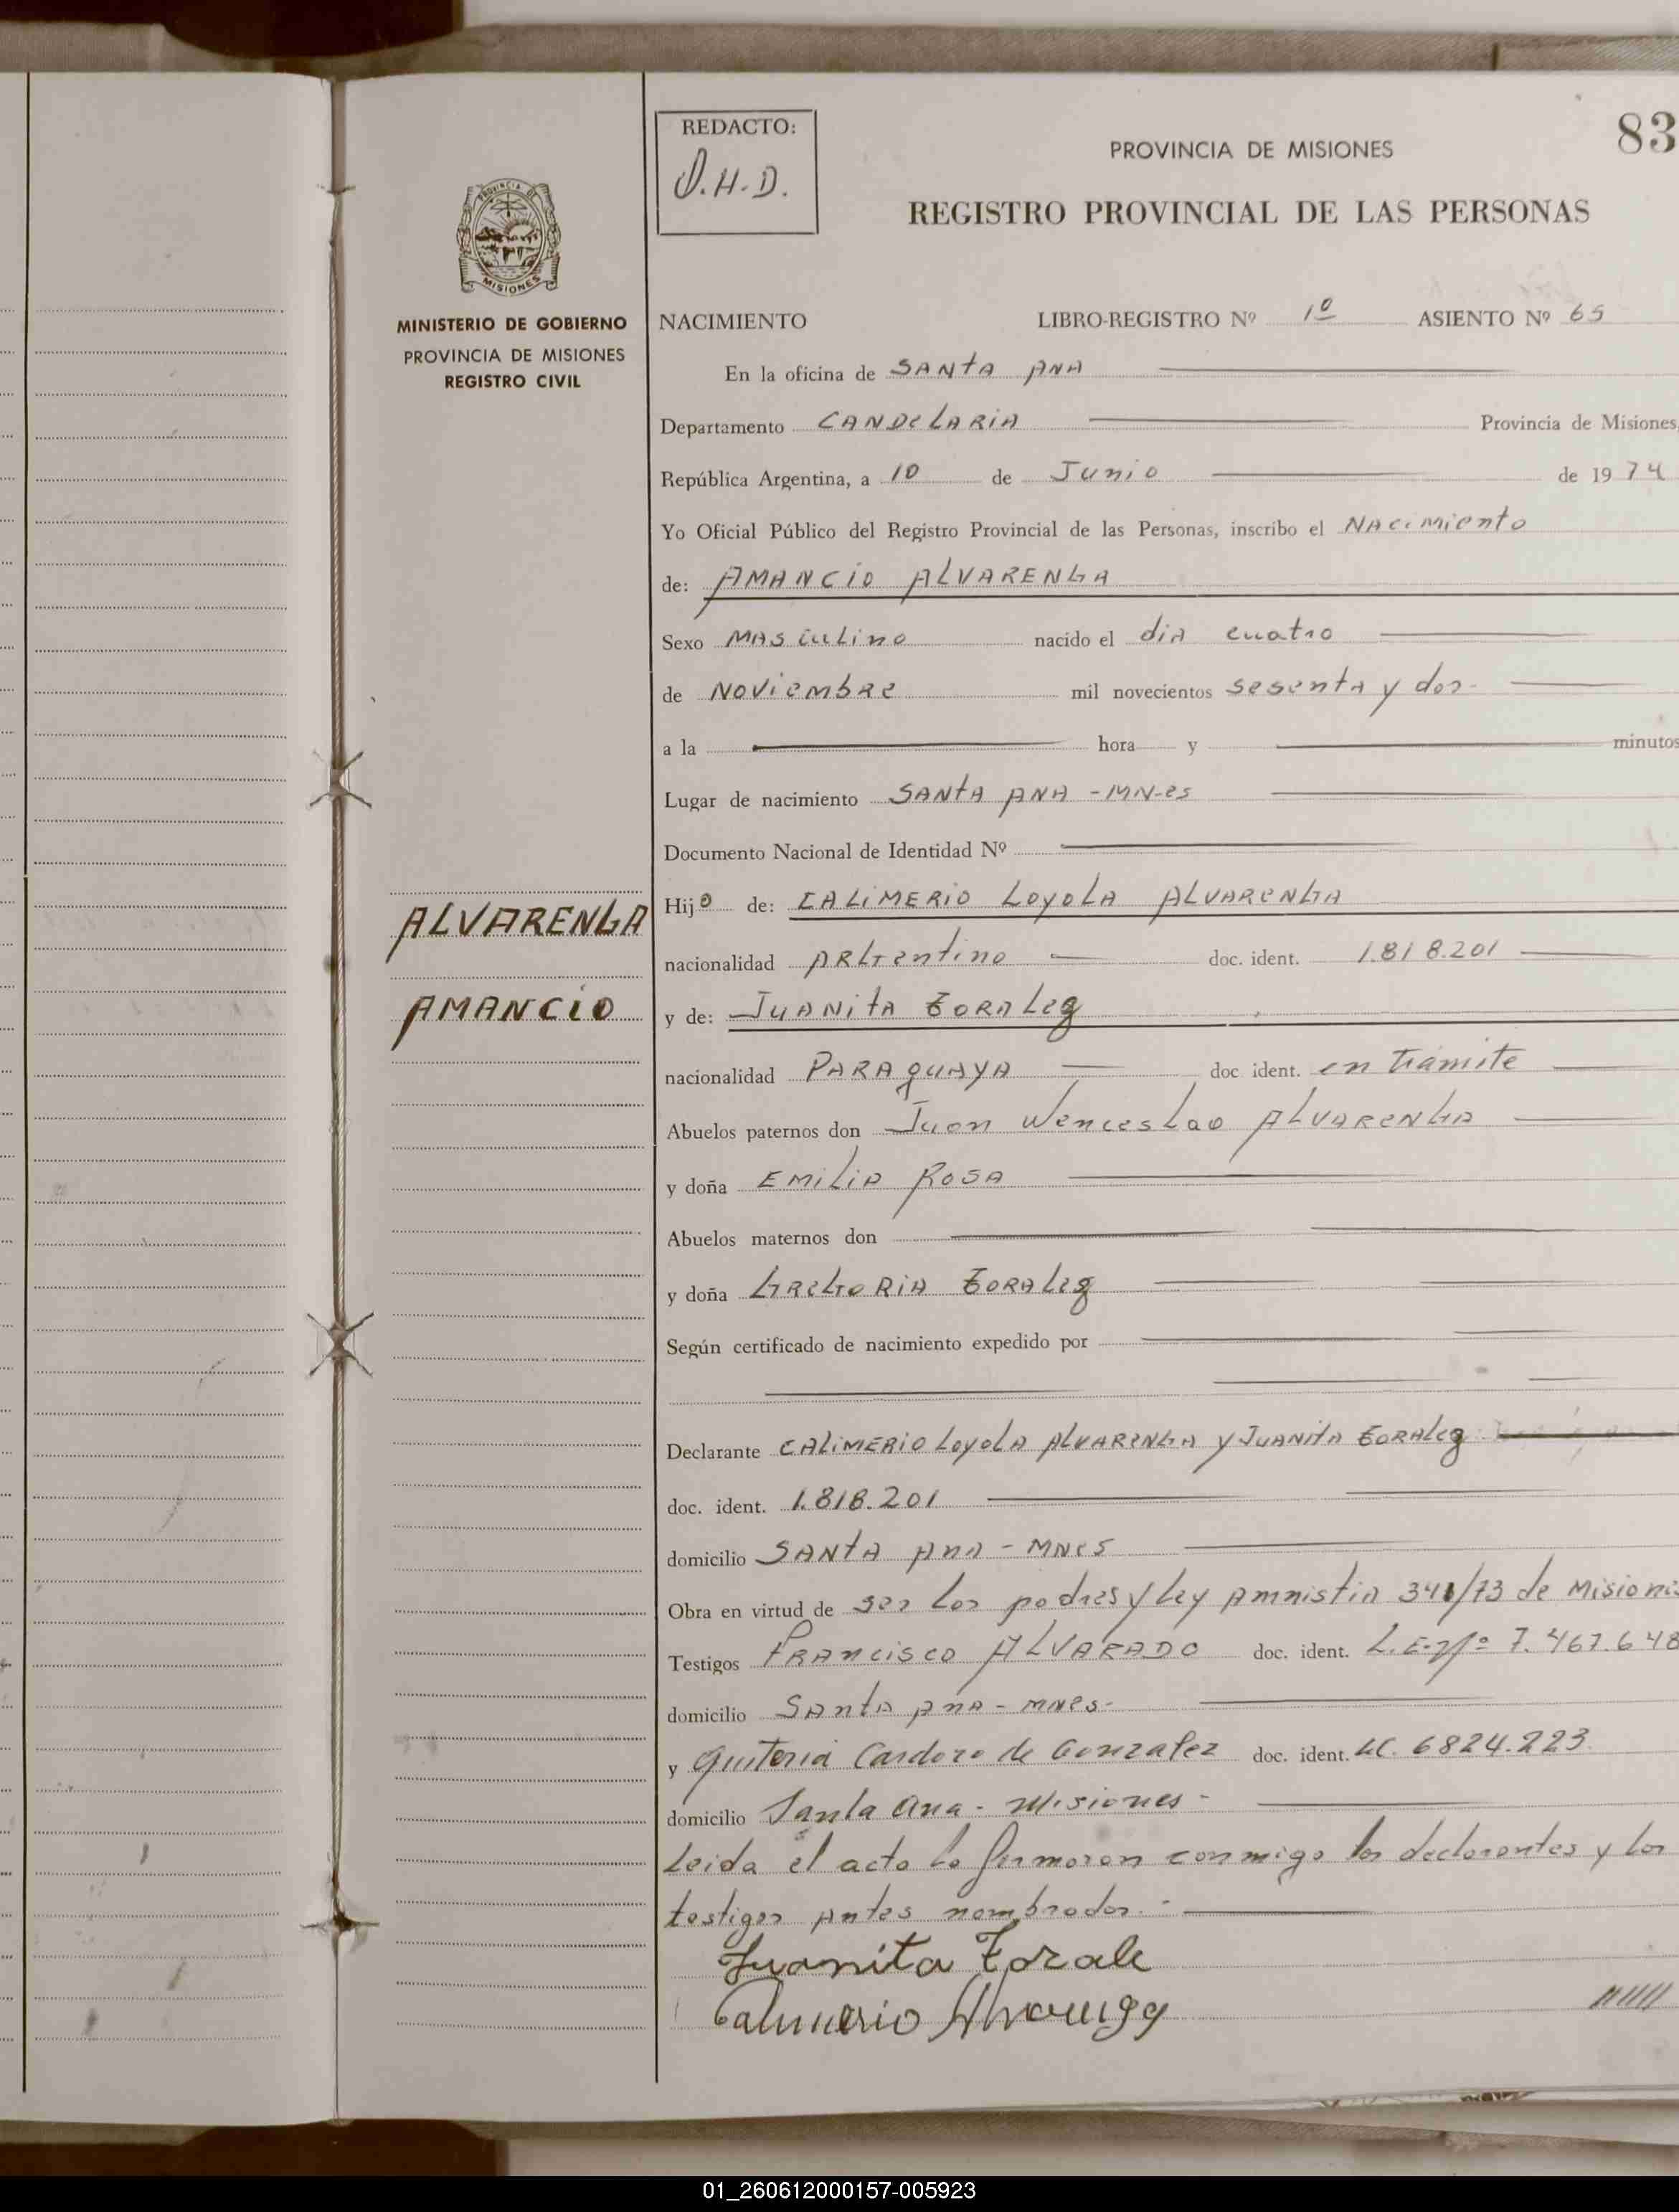 REDACTO:
O.H.D.
PROVINCIA DE MISIONES
83
REGISTRO PROVINCIAL DE LAS PERSONAS
PROVINCIA DE
MISIONES
MINISTERIO DE GOBIERNO
PROVINCIA DE MISIONES
REGISTRO CIVIL
NACIMIENTO LIBRO-REGISTRO Nº 1º ASIENTO Nº 65
En la oficina de SANTA ANA
Departamento CANDELARIA Provincia de Misiones,
República Argentina, a 10 de Junio de 1974
Yo Oficial Público del Registro Provincial de las Personas, inscribo el Nacimiento
de: AMANCIO ALVARENGA
Sexo Masculino nacido el dia cuatro
de Noviembre mil novecientos sesenta y dos-
a la hora y minutos
Lugar de nacimiento SANTA ANA -MN-es
Documento Nacional de Identidad Nº
ALVARENGA
AMANCIO
Hijo de: CALIMERIO LOYOLA ALVARENGA
nacionalidad ARGentino doc. ident. 1.818.201
y de: JUANITA
nacionalidad PARAguAYA doc. ident. en trámite
Abuelos paternos don Juan Wenceslao ALVARENGA
y doña EMILIA ROSA
Abuelos maternos don
y doña GREGORIA
Según certificado de nacimiento expedido por
Declarante CALIMERIO Loyola ALVARENGA y JUANITA
doc. ident. 1.818.201
domicilio SANTA Ana - MNes
Obra en virtud de ser los padres y Ley Amnistia 341/73 de Misiones
Testigos FRANCISCO ALVARADO doc. ident. L.E. Nº 7.467.648
domicilio Santa Ana - MNes-
y Quiteria Cardozo de Gonzalez doc. ident. LC. 6824.223.
domicilio Santa Ana - Misiones -
Leida el acta la firmaron conmigo los declarantes y los
testigos antes nombrados.-
Juanita Torale
Calimerio Alvarenga
01_260612000157-005923